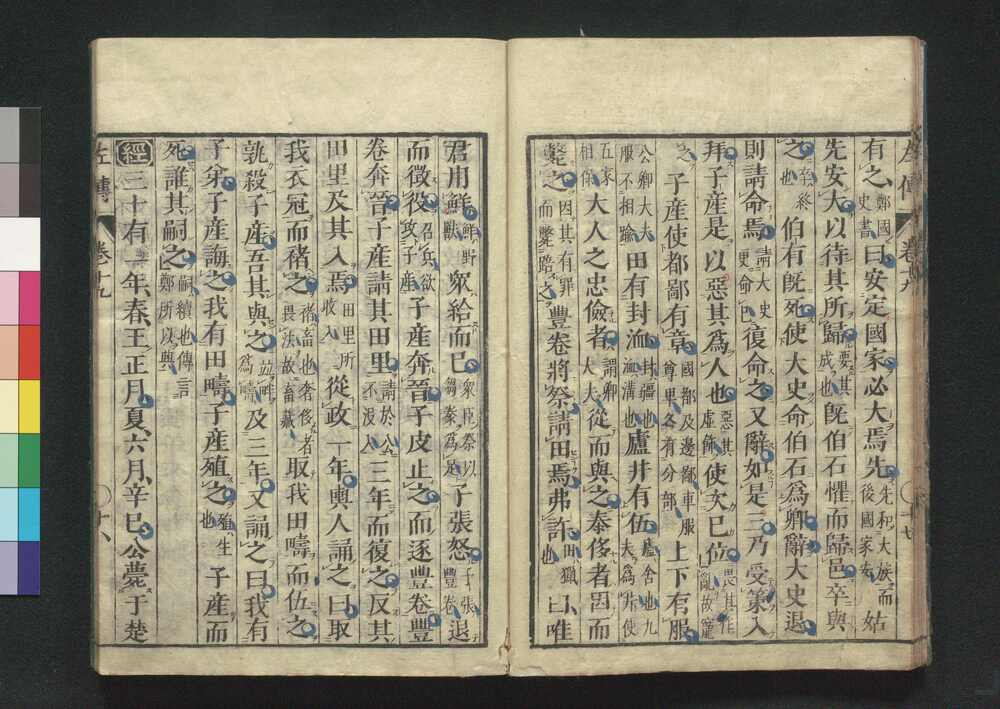 左傳 卷十九 十七
有之鄭國史書曰安定國家必大焉先先和大族而後國家安姑
先安大以待其所歸要其成也旣伯石懼而歸邑卒與
之卒終也伯有旣死使大史命伯石爲卿辭大史退
則請命焉請大史更命已復命之又辭如是三乃受策入
拜子產是以惡其爲人也惡其虛飾使次已位畏其作亂故寵
之子產使都鄙有章國都及邊鄙車服尊卑各有分部上下有服
公卿大夫服不相踰田有封洫封疆也洫溝也廬井有伍廬舍也九夫爲井使
五家相保大人之忠儉者謂卿大夫從而與之泰侈者因而
斃之因其有罪而斃踣之豐卷將祭請田焉弗許田獵也曰唯
君用鮮鮮野獸衆給而已衆臣祭以芻豢爲足子張怒子張豐卷退
而徵役召兵欲攻子產子產奔晉子皮止之而逐豐卷豐
卷奔晉子產請其田里請於公不沒入三年而復之反其
田里及其入焉田里所收入從政一年輿人誦之曰取
我衣冠而褚之褚畜也奢侈者畏法故畜藏取我田疇而伍之
孰殺子產吾其與之並畔爲疇及三年又誦之曰我有
子弟子產誨之我有田疇子產殖之殖生也子產而
死誰其嗣之嗣續也傳言鄭所以興
經三十有一年春王正月夏六月辛巳公薨于楚
左傳 卷十九 十八